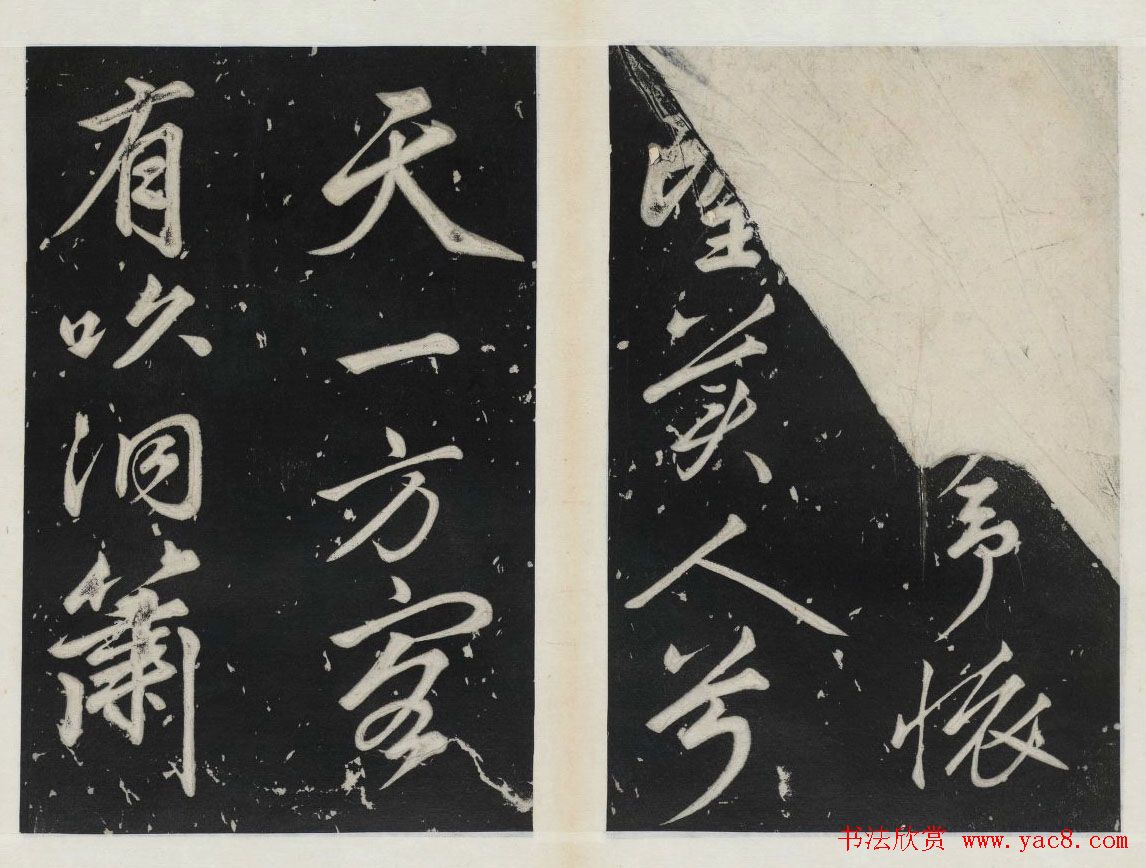 予懷
望美人兮
天一方客
有吹洞簫
书法欣赏 www.yac8.com